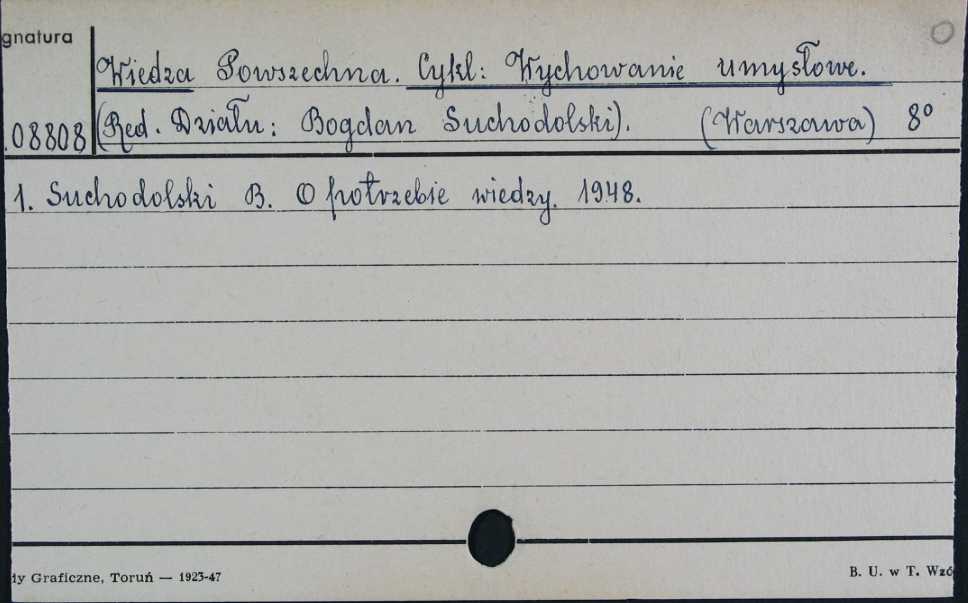 gnatura
Wiedza Powszechna. Cykl: Wychowanie umysłowe.
.08808 (Red. Działu: Bogdan Suchodolski). (Warszawa) 8º
1. Suchodolski B. O potrzebie wiedzy. 1948.
dy Graficzne, Toruń — 1923-47 B. U. w T. Wzó